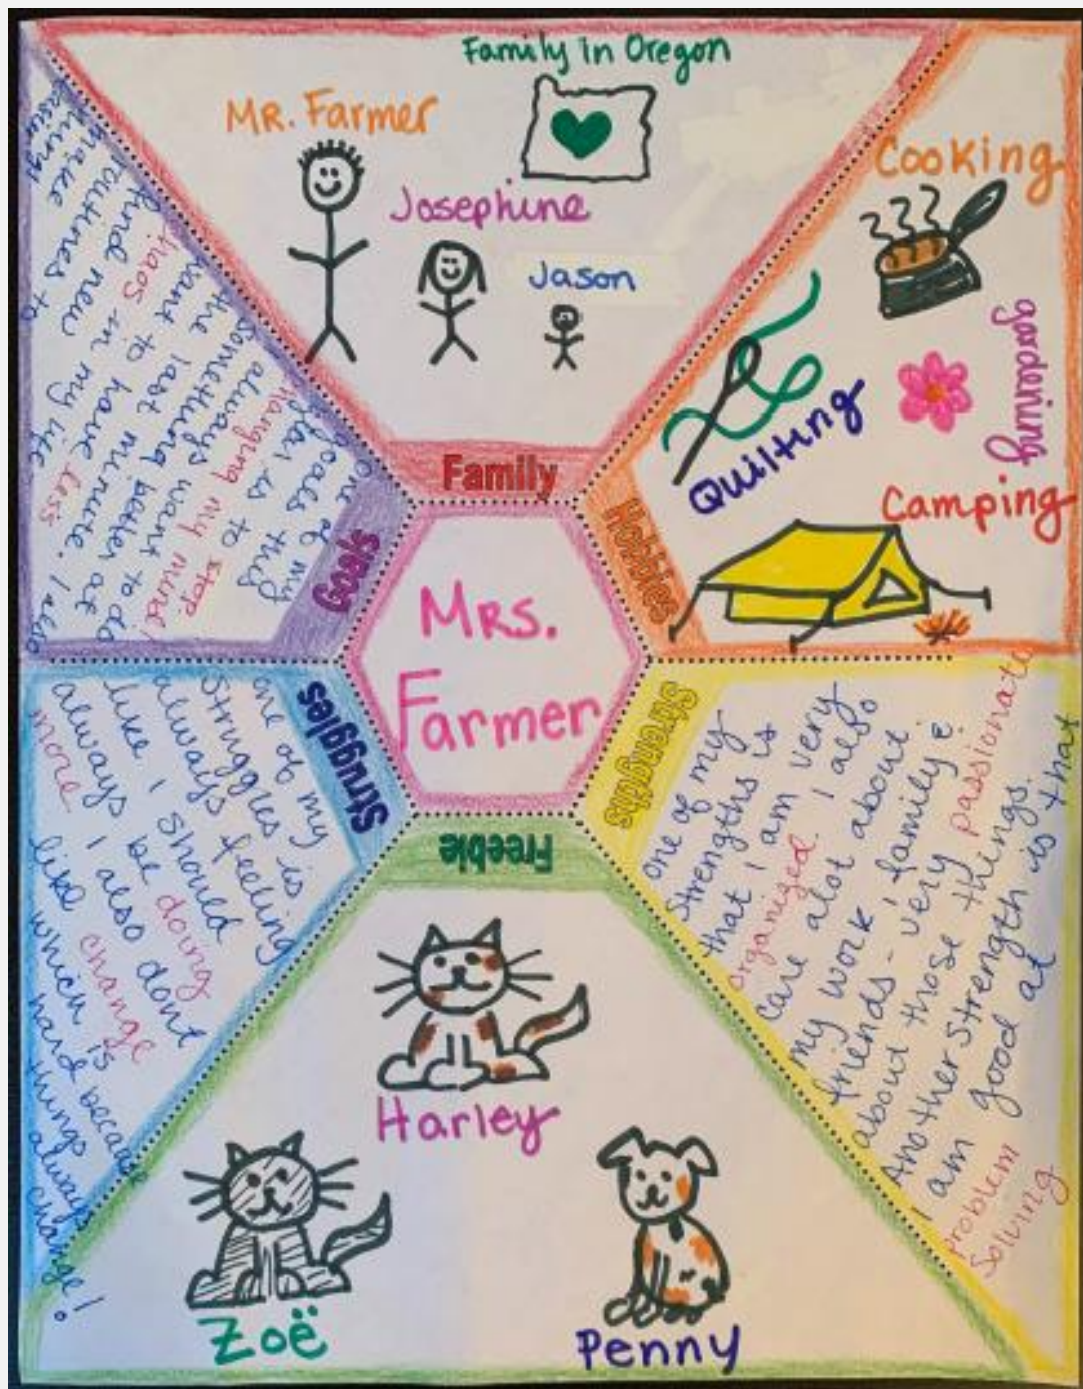 Family in Oregon
MR. Farmer
Josephine
Jason
Family
Cooking
gardening
Quilting
Camping
Hobbies
One of my
goals this
year is to stop
changing my mind!
always want to do
something better at
the last minute. I also
want to have less
chaos in my life
find new
routines to
make
things
easier
Goals
MRS.
Farmer
Struggles
one of my
struggles is
always feeling
like I should
always be doing
more I also dont
like change
which is
hard because
things
always
change!
Strengths
one of my
strengths is
that I am very
organized. I also
care alot about
my work, family &
friends - very passionate
about those things.
Another strength is that
I am good at
problem
solving
Freebie
Harley
Zoë
Penny